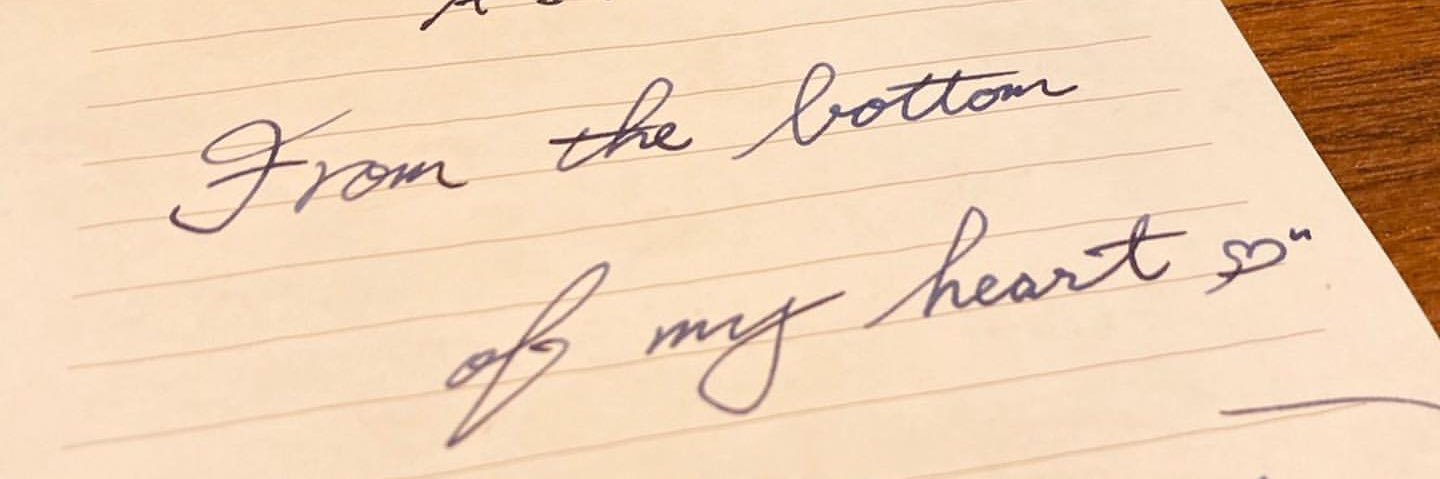 From the bottom
of my heart ♡"